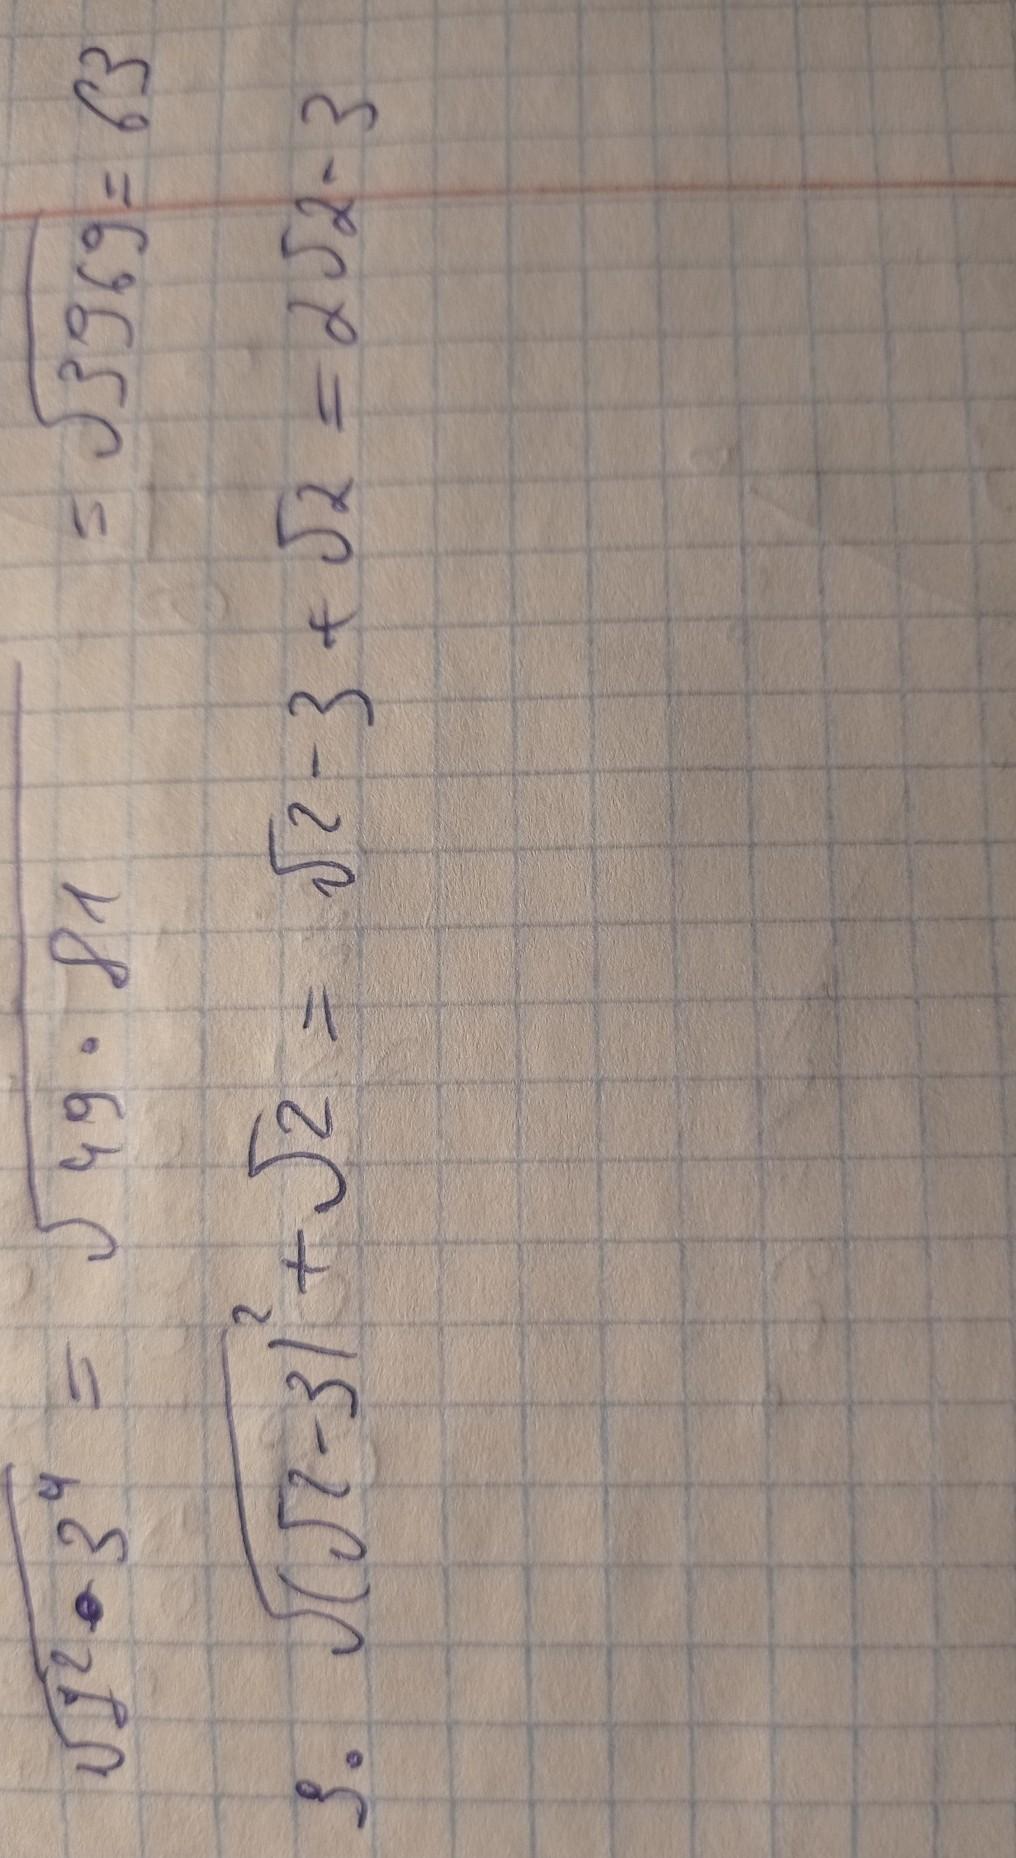 √7² · 3⁴ = √49 · 81 = √3969 = 63
9. √(√2 - 3)² + √2 = √2 - 3 + √2 = 2√2 - 3